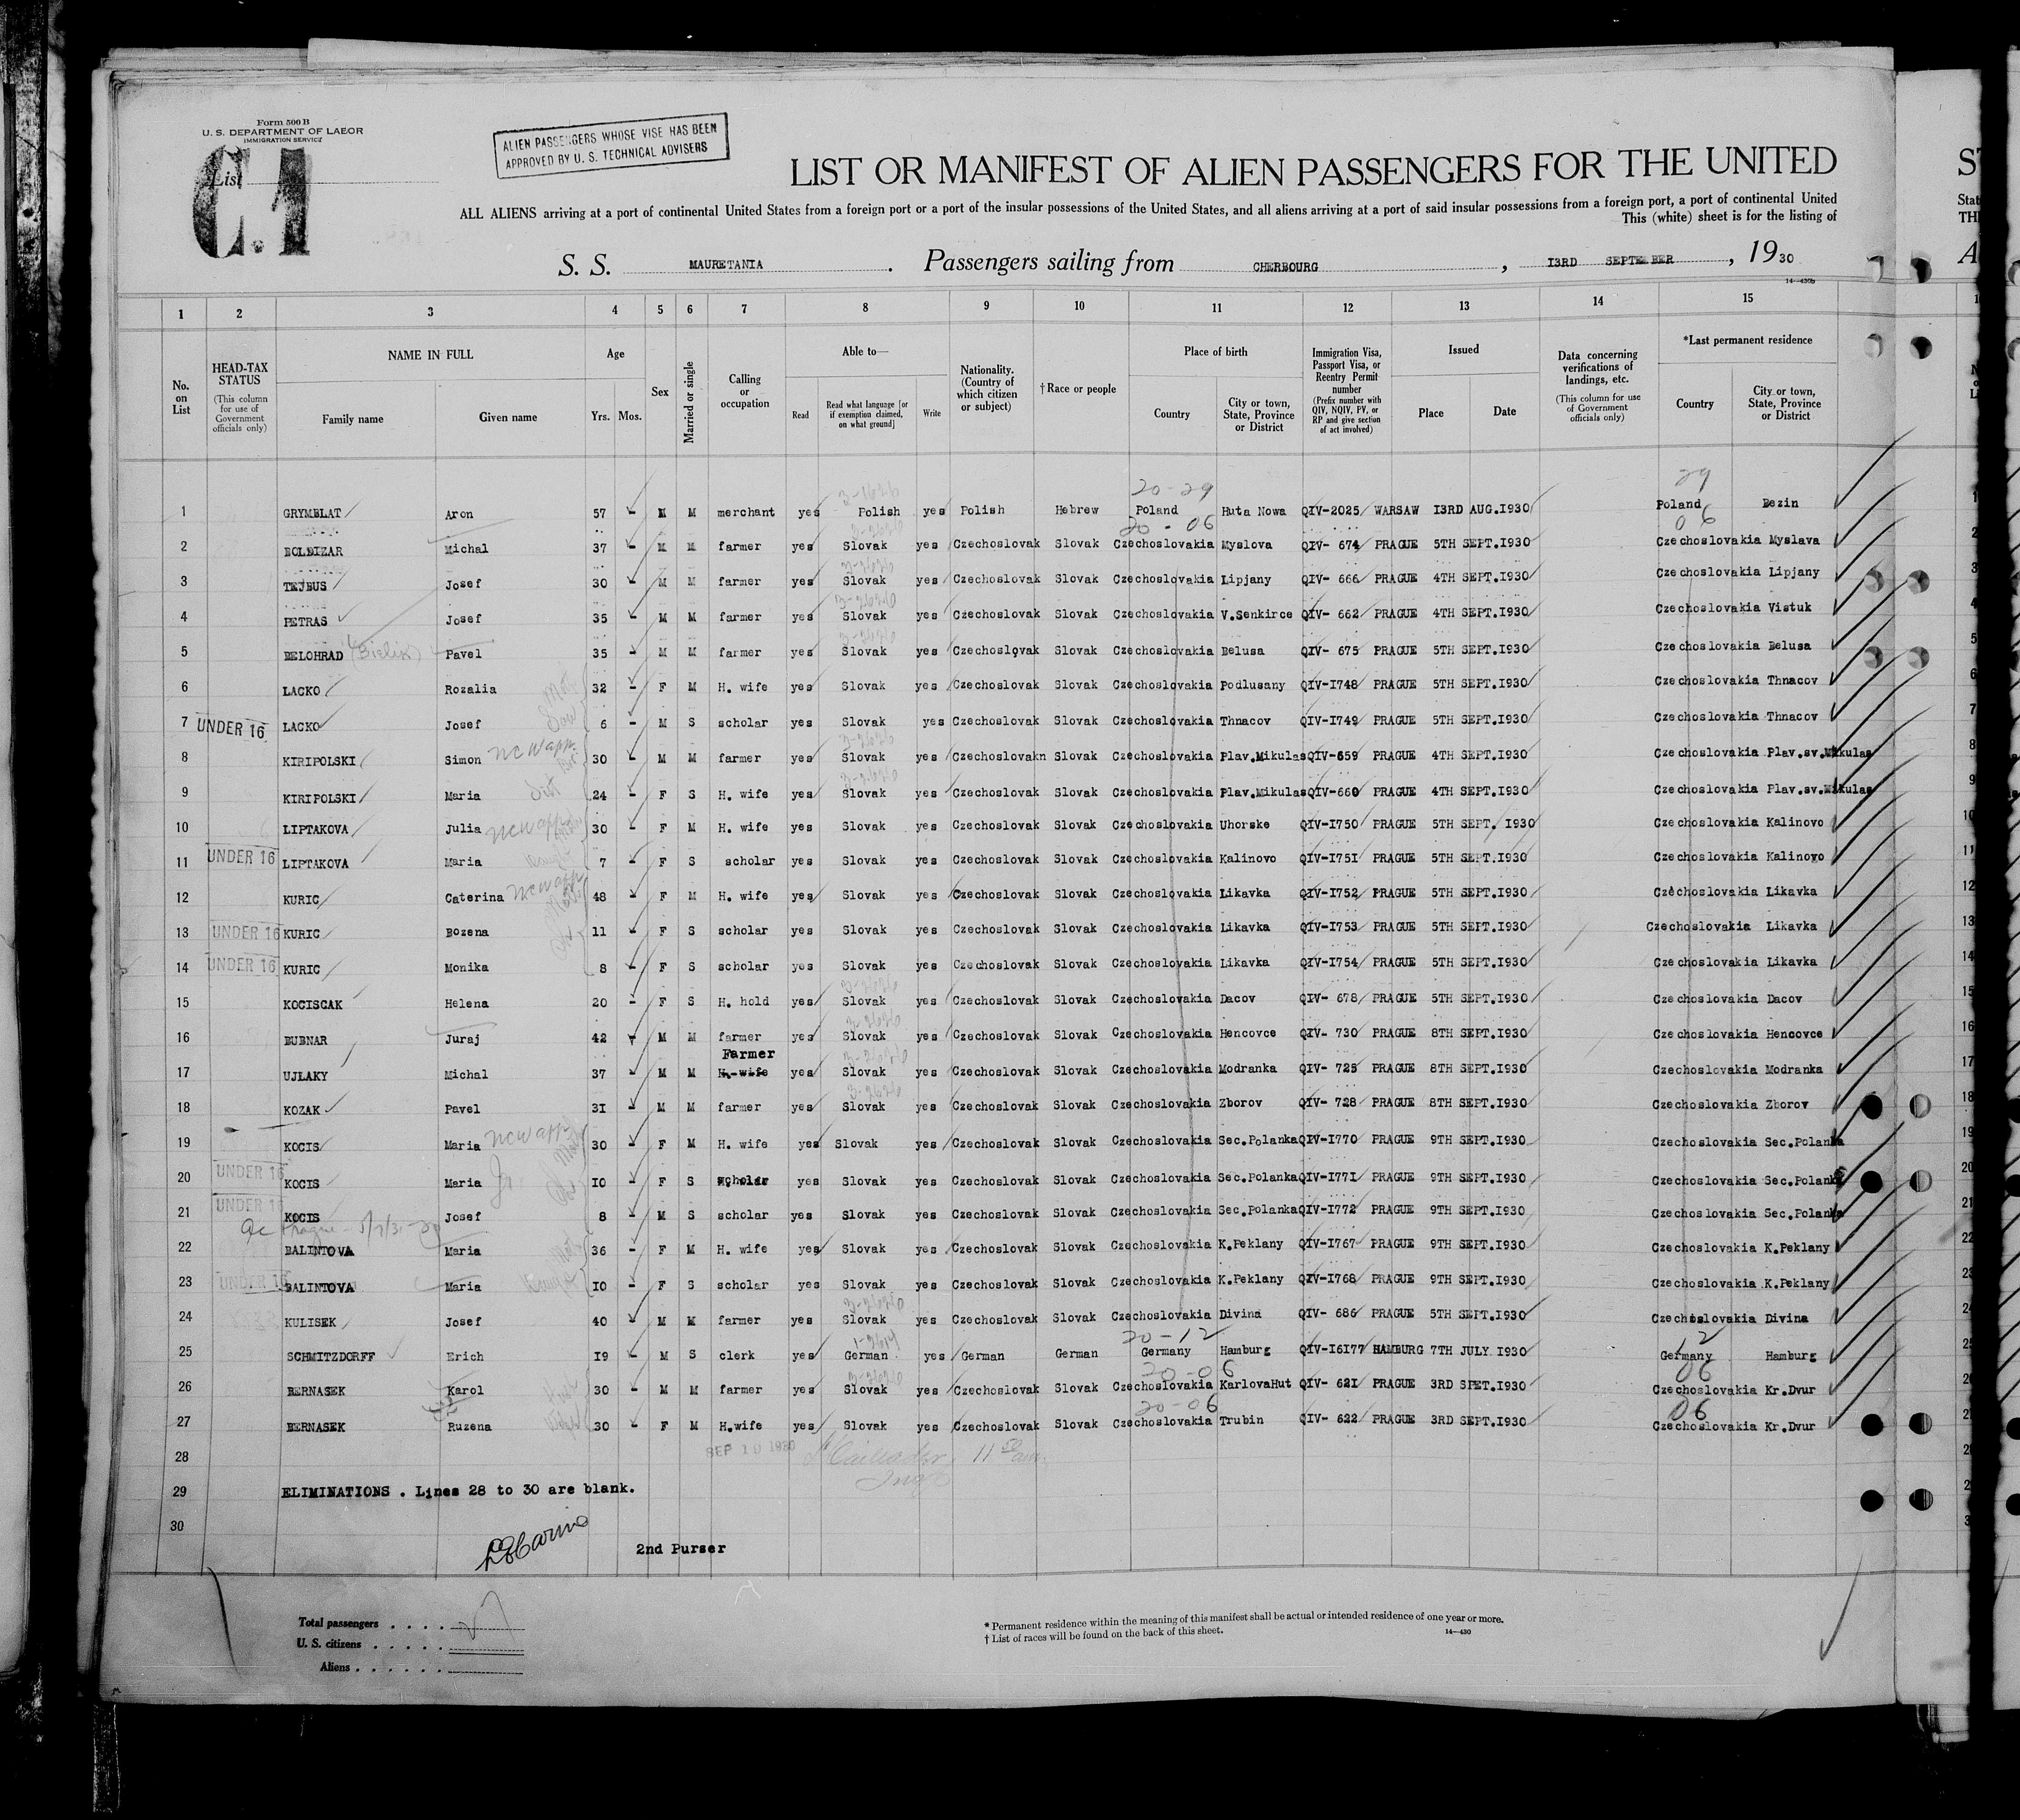 Form 500 B
U. S. DEPARTMENT OF LABOR
IMMIGRATION SERVICE
List
C.1
ALIEN PASSENGERS WHOSE VISE HAS BEEN
APPROVED BY U. S. TECHNICAL ADVISERS
LIST OR MANIFEST OF ALIEN PASSENGERS FOR THE UNITED
ALL ALIENS arriving at a port of continental United States from a foreign port or a port of the insular possessions of the United States, and all aliens arriving at a port of said insular possessions from a foreign port, a port of continental United
This (white) sheet is for the listing of
S. S. MAURETANIA . Passengers sailing from CHERBOURG , I3RD SEPTEMBER , 19 30
14—430b
1 2 3 4 5 6 7 8 9 10 11 12 13 14 15
No. on List
HEAD-TAX STATUS (This column for use of Government officials only)
NAME IN FULL Family name Given name
Age Yrs. Mos.
Sex
Married or single
Calling or occupation
Able to— Read Read what language [or if exemption claimed, on what ground] Write
Nationality. (Country of which citizen or subject)
†Race or people
Place of birth Country City or town, State, Province or District
Immigration Visa, Passport Visa, or Reentry Permit number (Prefix number with QIV, NQIV, PV, or RP and give section of act involved)
Issued Place Date
Data concerning verifications of landings, etc. (This column for use of Government officials only)
*Last permanent residence Country City or town, State, Province or District
3-1626 20-29 29
1 GRYMBLAT Aron 57 - M M merchant yes Polish yes Polish Hebrew Poland Huta Nowa QIV-2025 WARSAW I3RD AUG.I930 Poland Bezin
3-2626 20-06 06
2 BOLDIZAR Michal 37 - M M farmer yes Slovak yes Czechoslovak Slovak Czechoslovakia Myslova QIV- 674 PRAGUE 5TH SEPT.I930 Czechoslovakia Myslava
3-2626
3 TEJBUS Josef 30 - M M farmer yes Slovak yes Czechoslovak Slovak Czechoslovakia Lipjany QIV- 666 PRAGUE 4TH SEPT.I930 Czechoslovakia Lipjany
3-2626
4 PETRAS Josef 35 - M M farmer yes Slovak yes Czechoslovak Slovak Czechoslovakia V.Senkirce QIV- 662 PRAGUE 4TH SEPT.I930 Czechoslovakia Vistuk
3-2626
5 BELOHRAD (Bielik) Pavel 35 - M M farmer yes Slovak yes Czechoslovak Slovak Czechoslovakia Belusa QIV- 675 PRAGUE 5TH SEPT.I930 Czechoslovakia Belusa
6 LACKO Rozalia 32 - F M H. wife yes Slovak yes Czechoslovak Slovak Czechoslovakia Podlusany QIV-I748 PRAGUE 5TH SEPT.I930 Czechoslovakia Thnacov
7 UNDER 16 LACKO Josef 6 - M S scholar yes Slovak yes Czechoslovak Slovak Czechoslovakia Thnacov QIV-I749 PRAGUE 5TH SEPT.I930 Czechoslovakia Thnacov
3-2626
8 KIRIPOLSKI Simon 30 - M M farmer yes Slovak yes Czechoslovakn Slovak Czechoslovakia Plav.Mikulas QIV-659 PRAGUE 4TH SEPT.I930 Czechoslovakia Plav.sv.Mikulas
3-2626
9 KIRIPOLSKI Maria 24 - F S H. wife yes Slovak yes Czechoslovak Slovak Czechoslovakia Plav.Mikulas QIV-660 PRAGUE 4TH SEPT.I930 Czechoslovakia Plav.sv.Mikulas
10 LIPTAKOVA Julia 30 - F M H. wife yes Slovak yes Czechoslovak Slovak Czechoslovakia Uhorske QIV-I750 PRAGUE 5TH SEPT. I930 Czechoslovakia Kalinovo
11 UNDER 16 LIPTAKOVA Maria 7 - F S scholar yes Slovak yes Czechoslovak Slovak Czechoslovakia Kalinovo QIV-I75I PRAGUE 5TH SEPT.I930 Czechoslovakia Kalinovo
12 KURIC Caterina 48 - F M H. wife yes Slovak yes Czechoslovak Slovak Czechoslovakia Likavka QIV-I752 PRAGUE 5TH SEPT.I930 Czechoslovakia Likavka
13 UNDER 16 KURIC Bozena 11 - F S scholar yes Slovak yes Czechoslovak Slovak Czechoslovakia Likavka QIV-I753 PRAGUE 5TH SEPT.I930 Czechoslovakia Likavka
14 UNDER 16 KURIC Monika 8 - F S scholar yes Slovak yes Czechoslovak Slovak Czechoslovakia Likavka QIV-I754 PRAGUE 5TH SEPT.I930 Czechoslovakia Likavka
3-2626
15 KOCISCAK Helena 20 - F S H. hold yes Slovak yes Czechoslovak Slovak Czechoslovakia Dacov QIV- 678 PRAGUE 5TH SEPT.I930 Czechoslovakia Dacov
3-2626
16 BUBNAR Juraj 42 - M M farmer yes Slovak yes Czechoslovak Slovak Czechoslovakia Hencovce QIV- 730 PRAGUE 8TH SEPT.I930 Czechoslovakia Hencovce
Farmer 3-2626
17 UJLAKY Michal 37 - M M H. wife yes Slovak yes Czechoslovak Slovak Czechoslovakia Modranka QIV- 725 PRAGUE 8TH SEPT.I930 Czechoslovakia Modranka
3-2626
18 KOZAK Pavel 3I - M M farmer yes Slovak yes Czechoslovak Slovak Czechoslovakia Zborov QIV- 728 PRAGUE 8TH SEPT.I930 Czechoslovakia Zborov
19 KOCIS Maria 30 - F M H. wife yes Slovak yes Czechoslovak Slovak Czechoslovakia Sec.Polanka QIV-I770 PRAGUE 9TH SEPT.I930 Czechoslovakia Sec.Polanka
20 UNDER 16 KOCIS Maria I0 - F S scholar yes Slovak yes Czechoslovak Slovak Czechoslovakia Sec.Polanka QIV-I77I PRAGUE 9TH SEPT.I930 Czechoslovakia Sec.Polanka
21 UNDER 16 KOCIS Josef 8 - M S scholar yes Slovak yes Czechoslovak Slovak Czechoslovakia Sec.Polanka QIV-I772 PRAGUE 9TH SEPT.I930 Czechoslovakia Sec.Polanka
22 BALINTOVA Maria 36 - F M H. wife yes Slovak yes Czechoslovak Slovak Czechoslovakia K.Peklany QIV-I767 PRAGUE 9TH SEPT.I930 Czechoslovakia K.Peklany
23 UNDER 16 BALINTOVA Maria I0 - F S scholar yes Slovak yes Czechoslovak Slovak Czechoslovakia K.Peklany QIV-I768 PRAGUE 9TH SEPT.I930 Czechoslovakia K.Peklany
3-2626
24 KULISEK Josef 40 - M M farmer yes Slovak yes Czechoslovak Slovak Czechoslovakia Divina QIV- 686 PRAGUE 5TH SEPT.I930 Czechoslovakia Divina
1-2614 20-12 12
25 SCHMITZDORFF Erich I9 - M S clerk yes German yes German German Germany Hamburg QIV-I6I77 HAMBURG 7TH JULY I930 Germany Hamburg
3-2626 20-06 06
26 BERNASEK Karol 30 - M M farmer yes Slovak yes Czechoslovak Slovak Czechoslovakia KarlovaHut QIV- 62I PRAGUE 3RD SPET.I930 Czechoslovakia Kr.Dvur
20-06 06
27 BERNASEK Ruzena 30 - F M H.wife yes Slovak yes Czechoslovak Slovak Czechoslovakia Trubin QIV- 622 PRAGUE 3RD SEPT.I930 Czechoslovakia Kr.Dvur
SEP 10 1930
28
29 ELIMINATIONS . Lines 28 to 30 are blank.
30
2nd Purser
Total passengers
U. S. citizens
Aliens
* Permanent residence within the meaning of this manifest shall be actual or intended residence of one year or more.
† List of races will be found on the back of this sheet.
14—430